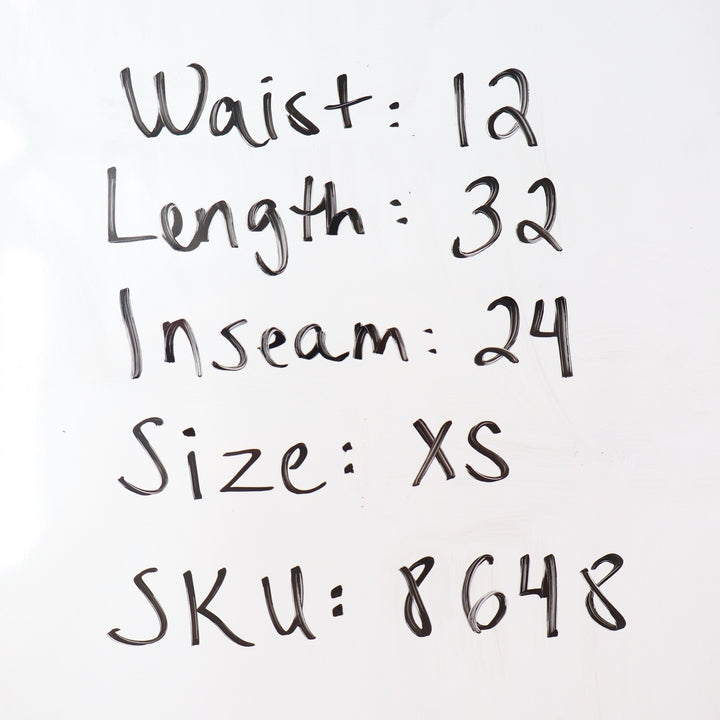 Waist: 12
Length: 32
Inseam: 24
Size: XS
SKU: 8648